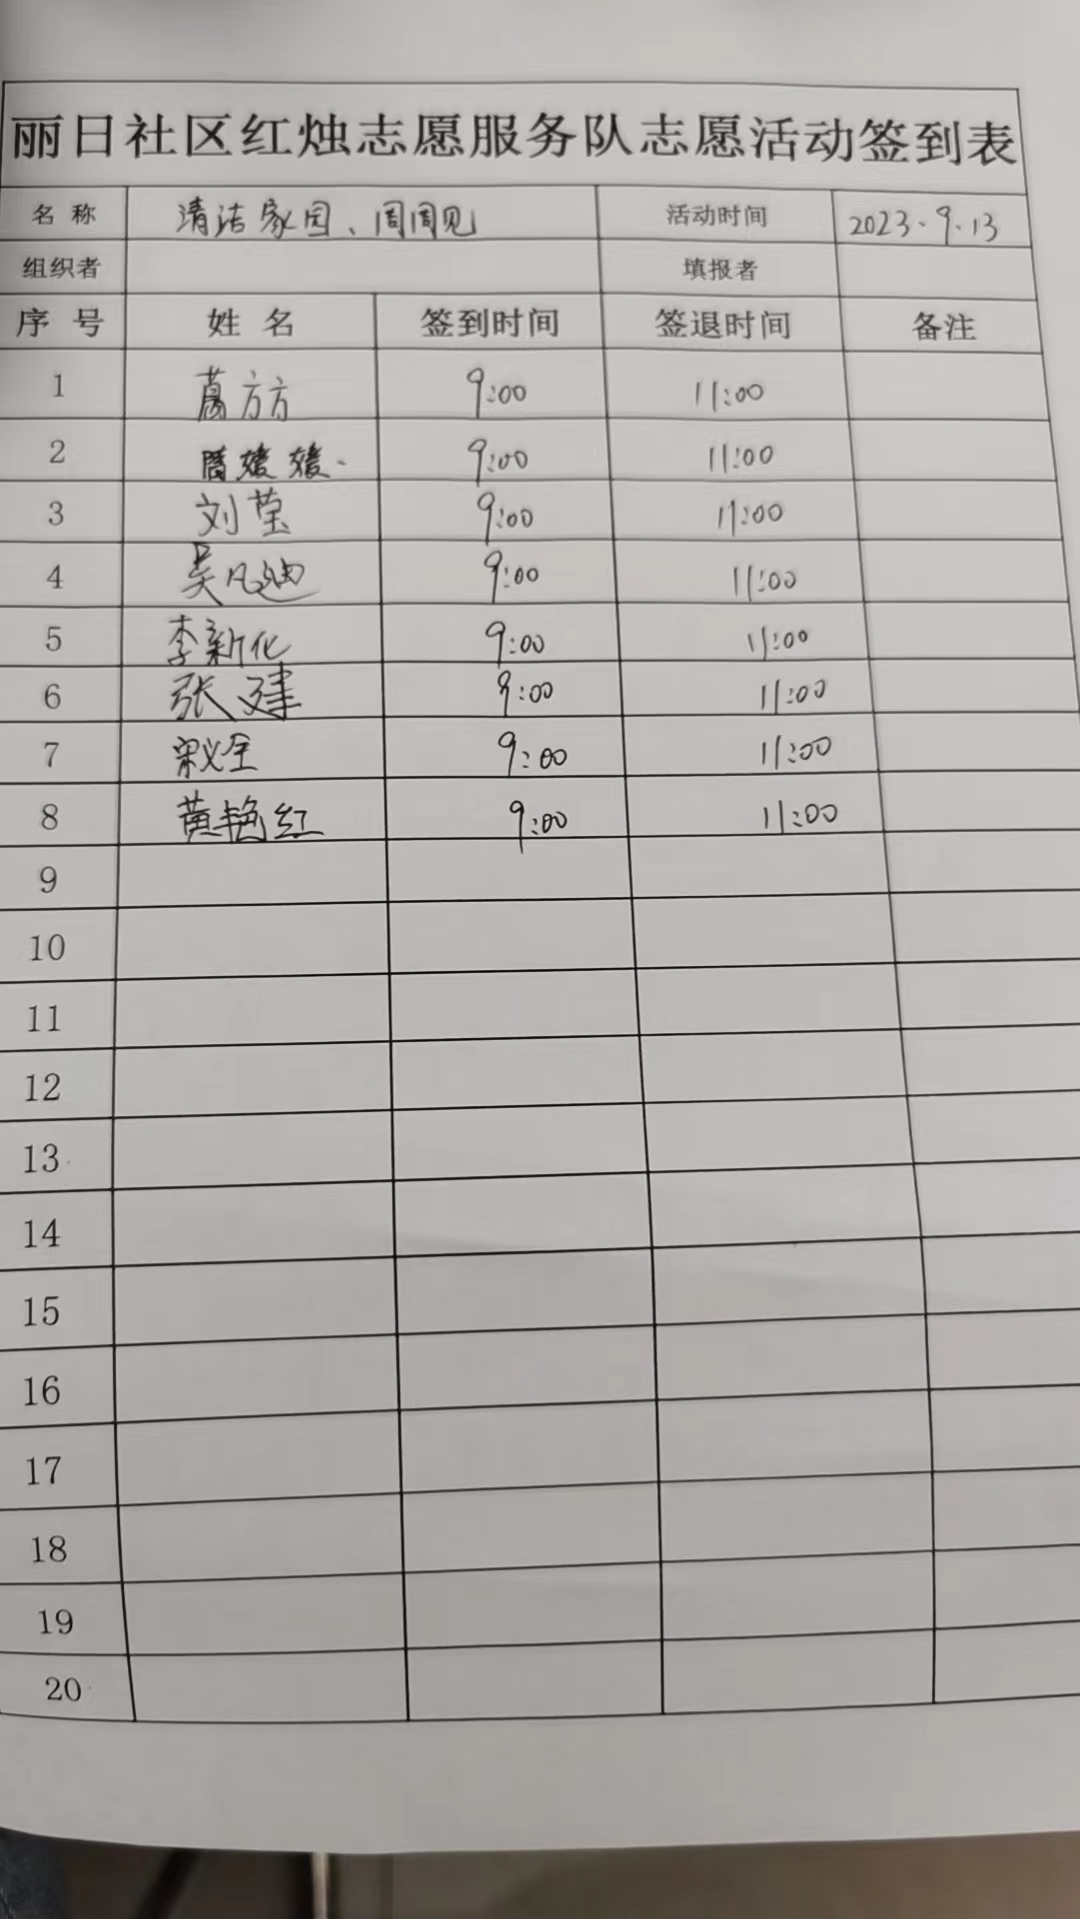 丽日社区红烛志愿服务队志愿活动签到表
名 称 清洁家园、周周见 活动时间 2023.9.13
组织者 填报者
序 号 姓 名 签到时间 签退时间 备注
1 葛方方 9:00 11:00
2 媛媛 9:00 11:00
3 刘莹 9:00 11:00
4 吴凡迪 9:00 11:00
5 李新化 9:00 11:00
6 张建 9:00 11:00
7 宋义全 9:00 11:00
8 黄艳红 9:00 11:00
9
10
11
12
13
14
15
16
17
18
19
20